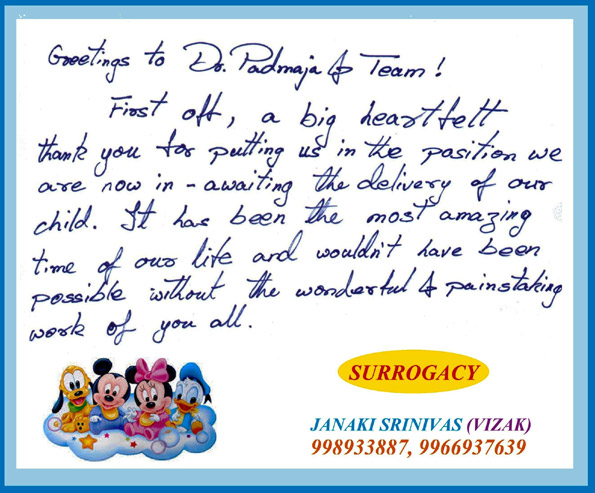 Greetings to Dr. Padmaja & Team!
First off, a big heartfelt
thank you for putting us in the position we
are now in - awaiting the delivery of our
child. It has been the most amazing
time of our life and wouldn't have been
possible without the wonderful & painstaking
work of you all.
SURROGACY
JANAKI SRINIVAS (VIZAK)
998933887, 9966937639